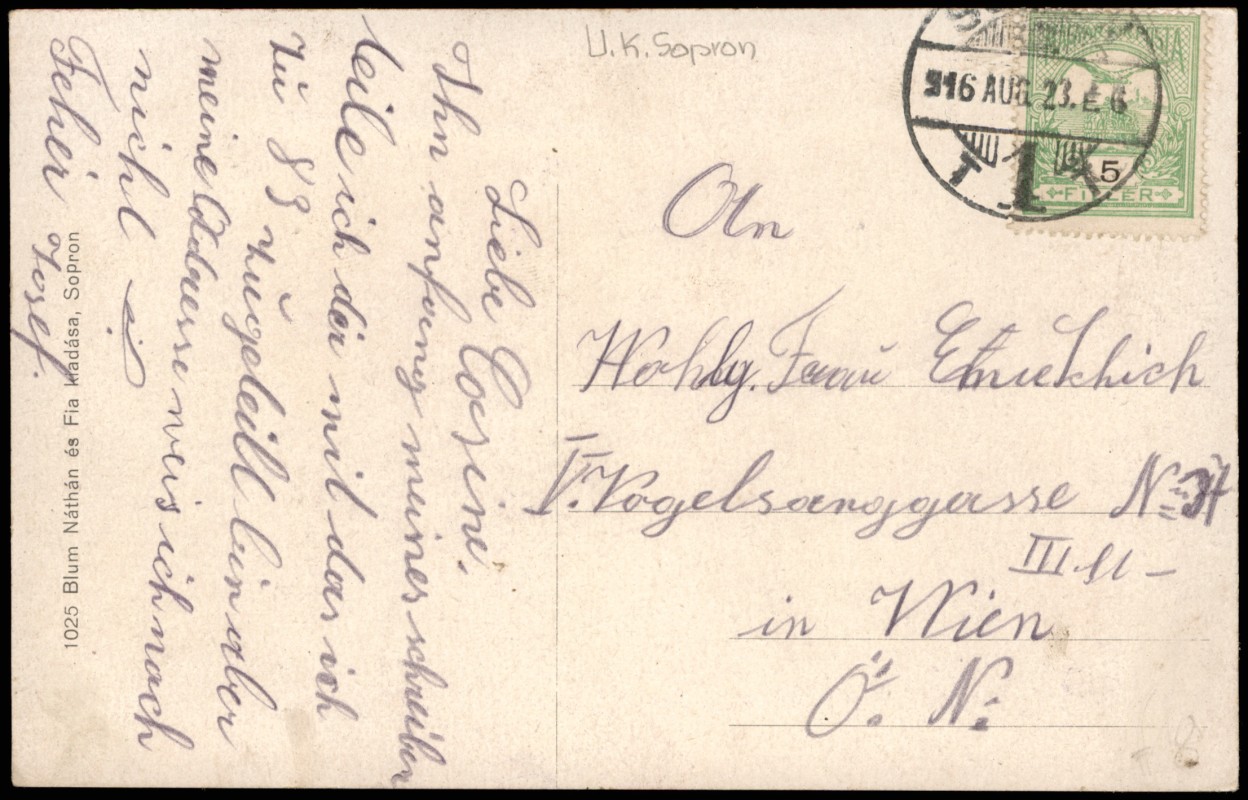 U.K. Sopron
916 AUG. 23. E 6
1
5
FILLER
Liebe Cosine,
Ihn anfang meines schreiben
teile ich dir mit das ich
zu 83 zugeteilt bin aber
meine Addresse weis ich noch
nicht
Feher Josef.
1025 Blum Náthán és Fia kiadása, Sopron
An
Wohlg. Frau
V. Vogelsanggasse No
III.
in Wien
Ö. N.
8